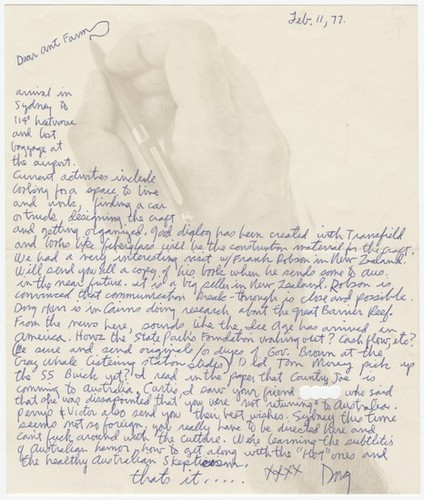 Feb. 11, 77.
Dear Ant Farm
arrival in
Sydney to
114° heatwave
and lost
baggage at
the airport.
Current activities include
looking for a space to live
and work, finding a car
or truck, designing the craft
and getting organized. good dialog has been created with Transfield
and looks like fiberglass will be the construction material for the craft.
We had a very interesting visit w/Frank Robson in New Zealand.
Will send you all a copy of his book when he sends some to aus.
in the near future. it is a big seller in New Zealand. Robson is
convinced that communication break-through is close and possible.
Doug Hurr is in Cairns doing research about the great Barrier Reef.
From the news here, sounds like the Ice Age has arrived in
America. Howz the State Parks Foundation working out? Cash flow, etc?
Be sure and send originals or dupes of Gov. Brown at the
Gray Whale Listening Station (slides) Did Tom Morey pick up
the 55 Buick yet? I read in the paper that Country Joe is
comming to Australia. Curtis, I saw your friend who said
that she was dissapointed that you were not returning to Australia.
Penny & Victor also send you their best wishes. Sydney this time
seems not so foreign, you really have to be directed here and
can't fuck around with the culture. We're learning the subtletis
of Australian humor, how to get along with the "Hot" ones and
the healthy Australian Skepticism.
that's it..... XXXX Doug